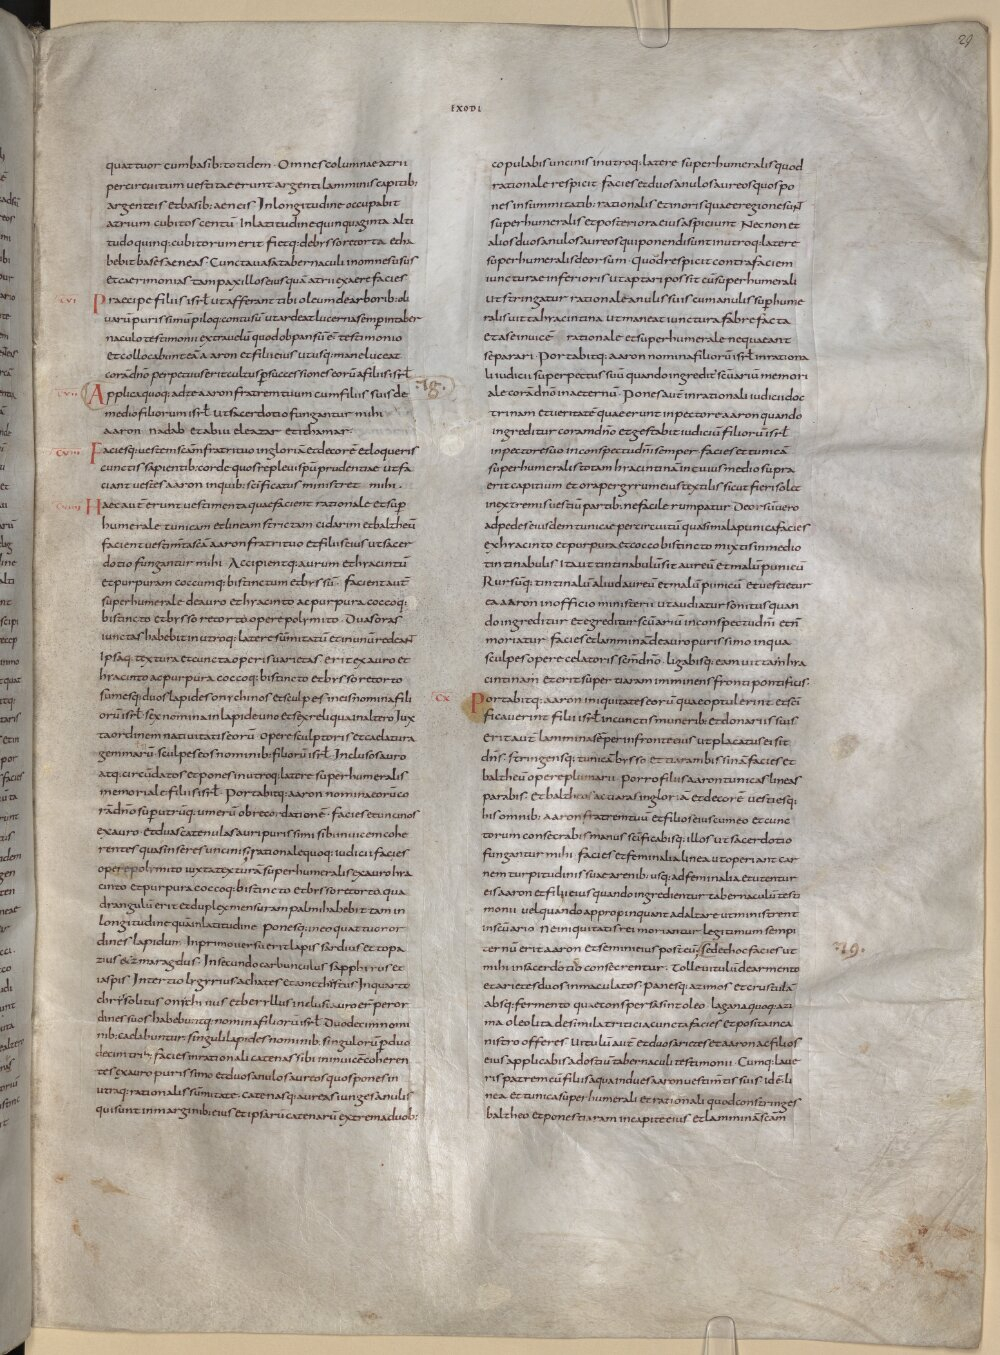 29
EXODI
quattuor cum basib: totidem. Omnes columnae atrii
per circuitum vestitae erunt argenti lamminis capitib:
argenteis et basib: aeneis In longitudine occupabit
atrium cubitos centū In latitudine quinquaginta alti
tudo quinq: cubitorum erit fietq: de bysso retorta et ha
bebit bases aeneas. Cuncta vasa tabernaculi in omnes usus
et caerimonias tam paxillos eius quā atrii ex aere facies
CVI Praecipe filiis isrł ut afferant tibi oleum de arborib: oli
varū purissimū piloq: contusū ut ardeat lucerna semp in taber
naculo testimonii extra velū quod oppansū ē testimonio
et collocabunt eā aaron et filii eius ut usq: mane luceat
corā dn̄o perpetuus erit cultus p successiones eorū a filiis isrł
CVII Applica quoq: ad te aaron fratrem tuum cum filiis suis de .18.
medio filiorum isrł ut sacerdotio fungantur mihi
aaron nadab et abiu eleazar et ithamar.
CVIII Faciesq: vestem scām fratri tuo in gloriā et decorē et loqueris
cunctis sapientib: corde quos replevi spū prudentiae ut fa
ciant vestes aaron in quib: scīficatus ministret mihi.
CVIIII Haec aut erunt vestimenta quae facient rationale et sup
humerale tunicam et lineam strictam cidarim et baltheū
facient vestimta scā aaron fratri tuo et filiis eius ut sacer
dotio fungantur mihi. Accipientq: aurum et hyacintū
et purpuram coccumq: bis tinctum et byssū. facient aut
superhumerale de auro et hyacinto ac purpura coccoq:
bis tincto et bysso retorto opere polymito. Duas oras
iunctas habebit in utroq: latere sūmitatū et in unū redeant
Ipsaq: textura et cuncta operis varietas erit ex auro et
hyacinto ac purpura coccoq: bis tincto et bysso retorto
sumesq: duos lapides onychinos et sculpes in eis nomina fili
orū isrł sex nomina in lapide uno et sex reliqua in altero Iux
ta ordinem nativitatis eorū Opere sculptoris et caelatura
gemmarū sculpes eos nominib: filiorū isrł. Inclusos auro
atq: circūdatos et pones in utroq: latere superhumeralis
memoriale filiis isrł. Portabitq: aaron nomina eorū co
rā dn̄o sup utrūq: umerū ob recordationē. facies et uncinos
ex auro. Et duas catenulas auri purissimi sibi invicem cohe
rentes quas inseres uncinis. rationale quoq: iudicii facies
opere polymito iuxta texturā superhumeralis ex auro hya
cinto et purpura coccoq: bis tincto et bysso retorto qua
drangulū erit et duplex mensuram palmi habebit tam in
longitudine quā in latitudine Ponesq: in eo quattuor or
dines lapidum. In primo versu erit lapis sardius et topa
zius et zmaragdus. In secundo carbunculus sapphirus et
iaspis. In tertio lygyrius achates et amethistus In quarto
chrysolitus onychinus et beryllus inclusi auro erunt per or
dines suos habebuntq: nomina filiorū isrł Duodecim nomi
nib: caelabuntur singuli lapides nominib: singulorū p duo
decim trib: facies in rationali catenas sibi invicē coheren
tes ex auro purissimo et duos anulos aureos quos pones in
utraq: rationalis sūmitate. catenasq: aureas iunges anulis
qui sunt in marginib: eius et ipsarū catenarū extrema duob:
copulabis uncinis in utroq: latere superhumeralis quod
rationale respicit facies et duos anulos aureos quos po
nes in summitatib: rationalis et in oris quae e regione sunt
superhumeralis et posteriora eius aspiciunt Necnon et
alios duos anulos aureos qui ponendi sunt in utroq: latere
superhumeralis deorsum. Quod respicit contra faciem
iuncturae inferioris ut aptari possit cū superhumerali
ut stringatur rationale anulis suis cum anulis sup hume
ralis vitta hyacintina ut maneat iunctura fabrefacta
et a se invicē rationale et superhumerale nequeant
separari. Portabitq: aaron nomina filiorū isrł in rationa
li iudicii super pectus suū quando ingredit scūarium memori
ale corā dn̄o in aeternū. Pones aut in rationali iudicii doc
trinam et veritatē quae erunt in pectore aaron quando
ingreditur coram dn̄o et gestabit iudiciū filiorū isrł
in pectore suo in conspectu dn̄i semper. facies et tunicā
superhumeralis totam hyacintinā in cuius medio supra
erit capitium et ora per gyrum eius textilis sicut fieri solet
in extremis vestiū partib: ne facile rumpatur. Deorsū vero
ad pedes eiusdem tunicae per circuitū quasi mala punica facies
ex hyacinto et purpura et cocco bis tincto mixtis in medio
tintinabulis Ita ut tintinabulū sit aureū et malū punicū
Rursūq: tintinalū aliud aureū et malū punicū et vestietur
ea aaron in officio ministerii ut audiatur sonitus quan
do ingreditur et egreditur scūariū in conspectu dn̄i et n̄
moriatur facies et lamminā de auro purissimo in qua
sculpes opere celatoris scm̄ dn̄o. ligabisq: eam vitta hya
cintina et erit super tiaram imminens fronti pontificis.
CX Portabitq: aaron iniquitates eorū quae optulerint et scī
ficaverint filii isrł in cunctis munerib: et donariis suis
erit aut lammina sēper in fronte eius ut placatus ei sit
dn̄s. stringensq: tunicā bysso et tiaram bissinā facies et
baltheū opere plumarii. Porro filiis aaron tunicas lineas
parabis. et baltheos ac tiaras in gloriā et decorē vestiesq:
his omnib: aaron fratrem tuū et filios eius cum eo et cunc
torum consecrabis manus scīficabisq: illos ut sacerdotio
fungantur mihi. facies et feminalia linea ut operiant car
nem turpitudinis suae a renib: usq: ad feminalia et utentur
eis aaron et filii eius quando ingredientur tabernaculū testi
monii vel quando appropinquant ad altare ut ministrent
in scūario Ne iniquitatis rei moriantur legitimum sempi
ternū erit aaron et semini eius post eū. sed et hoc facies ut .19.
mihi in sacerdotio consecrentur. Tolle vitulū de armento
et arietes duos inmaculatos. Panesq: azimos et crustula
absq: fermento quae conspersa sint oleo lagana quoq: azi
ma oleo lita de simila triticia cuncta facies et posita in ca
nistro offeres vitulū aut et duos arietes et aaron ac filios
eius applicabis ad ostiū tabernaculi testimonii. Cumq: lave
ris patrem cū filiis aqua indues aaron vestimtis suis id ē li
nea et tunica superhumerali et rationali quod constringes
baltheo et pones tiaram in capite eius et lamminā scām